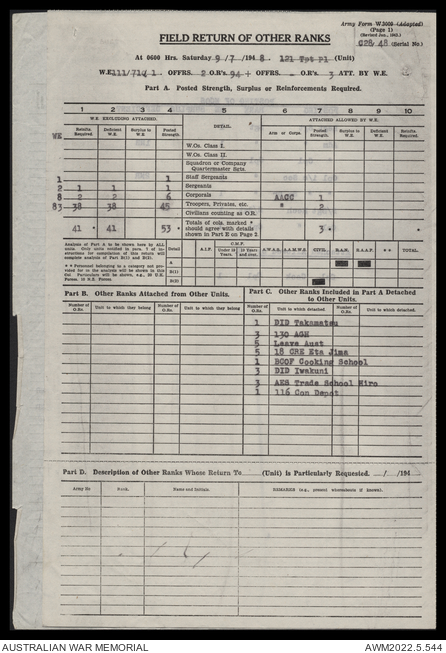 Army Form W.3009 (Adapted)
(Page 1)
FIELD RETURN OF OTHER RANKS
028/48 (Serial No.)
At 0600 Hrs. Saturday 9/7/1948. 121 Tpt Pl (Unit)
W.E. OFFRS. 2 O.R's. 94 + OFFRS. - O.R's. 3 ATT. BY W.E.
Part A. Posted Strength, Surplus or Reinforcements Required.
1 2 3 4 5 6 7 8 9 10
W.E. EXCLUDING ATTACHED. ATTACHED ALLOWED BY W.E.
WE Reinfts. Required. Deficient W.E. Surplus to W.E. Posted Strength. DETAIL. Arm or Corps. Posted Strength. Surplus to W.E. Deficient W.E. Reinfts. Required.
W.Os. Class I.
W.Os. Class II.
Squadron or Company Quartermaster Serts.
1 1 Staff Sergeants
2 1 1 1 Sergeants
8 2 2 6 Corporals AACC 1
83 38 38 45 Troopers, Privates, etc. " 2
Civilians counting as O.R.
41 • 41 53 • Totals of cols. marked * should agree with details shown in Part E on Page 2. 3 •
Analysis of Part A to be shown here by ALL units. Detail A.I.F. C.M.F. A.W.A.S. A.A.M.W.S. CIVIL. R.A.N. R.A.A.F. * * TOTAL.
Under 19 Years. 19 Years and over.
A
B(1)
B(2)
Part B. Other Ranks Attached from Other Units. Part C. Other Ranks Included in Part A Detached to Other Units.
Number of O.Rs. Unit to which they belong Number of O.Rs. Unit to which they belong Number of O.Rs. Unit to which detached. Number of O.Rs. Unit to which detached.
1 DID Takamatsu
3 130 AGH
5 Leave Aust
5 18 CRE Eta Jima
1 BCOF Cooking School
3 DID Iwakuni
3 AES Trade School Hiro
1 116 Con Depot
Part D. Description of Other Ranks Whose Return To (Unit) is Particularly Requested. / /194
Army No Rank. Name and Initials. REMARKS (e.g., present whereabouts if known).
AUSTRALIAN WAR MEMORIAL AWM2022.5.544